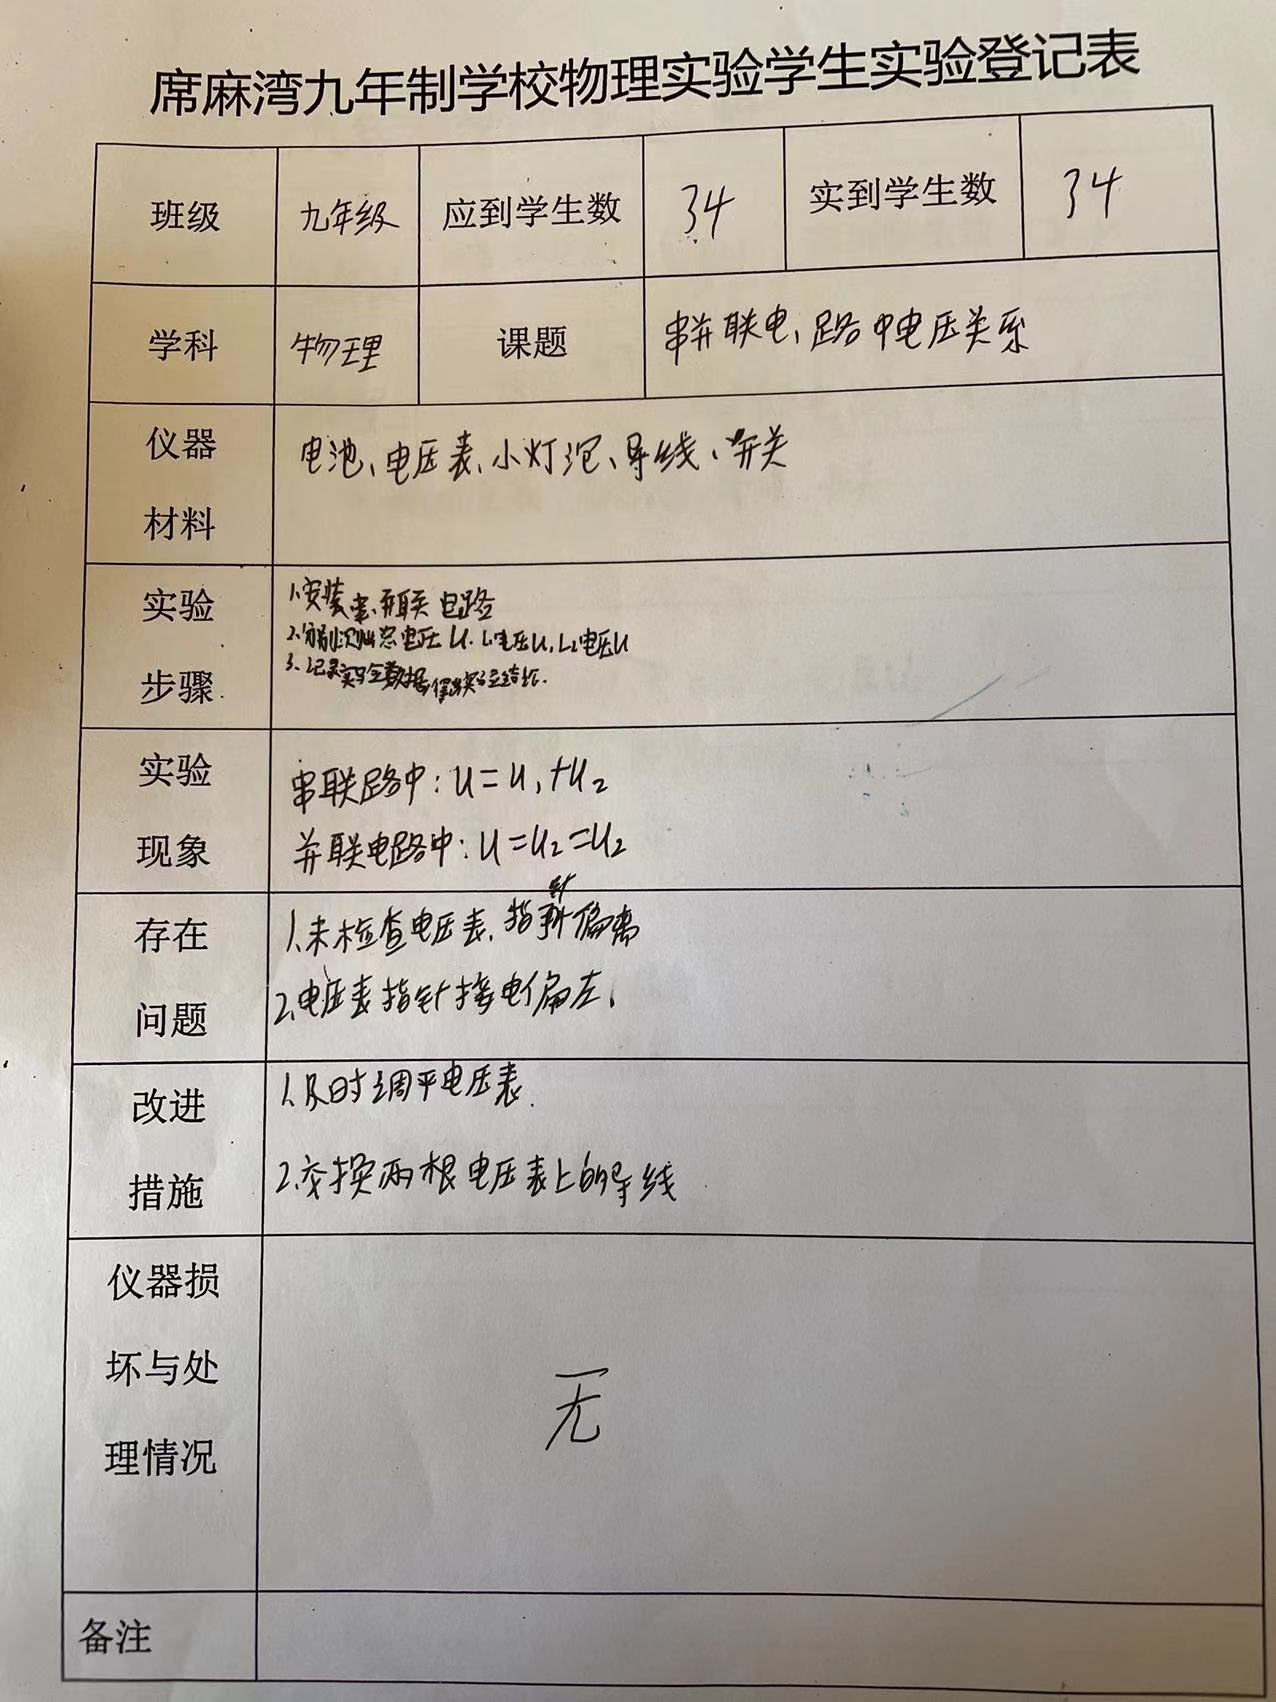 席麻湾九年制学校物理实验学生实验登记表
班级 九年级 应到学生数 34 实到学生数 34
学科 物理 课题 串并联电路中电压关系
仪器 电池、电压表、小灯泡、导线、开关
材料
实验 1.安装串、并联电路
2.分别测出总电压U、L1电压U1、L2电压U
步骤 3.记录实验数据,得出实验结论.
实验 串联路中:U=U1+U2
现象 并联电路中:U=U2=U2
存在 1.未检查电压表,指针偏离
问题 2.电压表指针接电偏左.
改进 1.及时调平电压表.
措施 2.交换两根电压表上的导线
仪器损
坏与处 无
理情况
备注